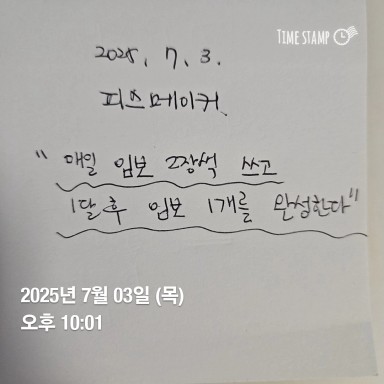 TIME STAMP
2025. 7. 3.
피스메이커
"매일 임보 2장씩 쓰고
1달후 임보 1개를 완성한다"
2025년 7월 03일 (목)
오후 10:01